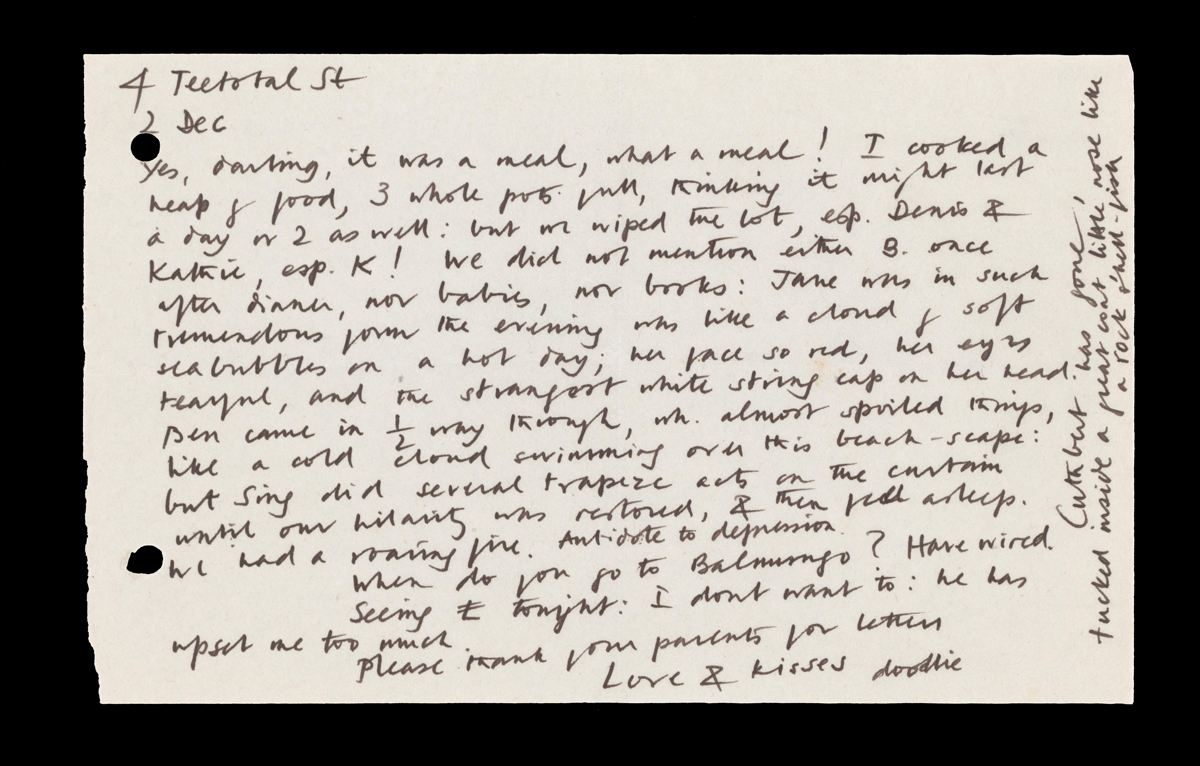 4 Teetotal St
2 Dec
Yes, darling, it was a meal, what a meal! I cooked a
heap of food, 3 whole pots full, thinking it might last
a day or 2 as well: but we wiped the lot, esp. Denis &
Kathie, esp. K! We did not mention either B. once
after dinner, nor babies, nor books: Jane was in such
tremendous form the evening was like a cloud of soft
seabubbles on a hot day; her face so red, her eyes
tearful, and the strangest white string cap on her head.
Ben came in ½ way through, wh. almost spoiled things,
like a cold cloud swimming over this beach-scape:
but Sing did several trapeze acts on the curtain
until our hilarity was restored, & then fell asleep.
We had a roaring fire. Antidote to depression.
When do you go to Balmungo? Have wired.
Seeing E tonight: I dont want to: he has
upset me too much.
Please thank your parents for letters
Love & kisses doodlie
Cuthbert has gone,
tucked inside a great coat little nose like
a rock shell-fish